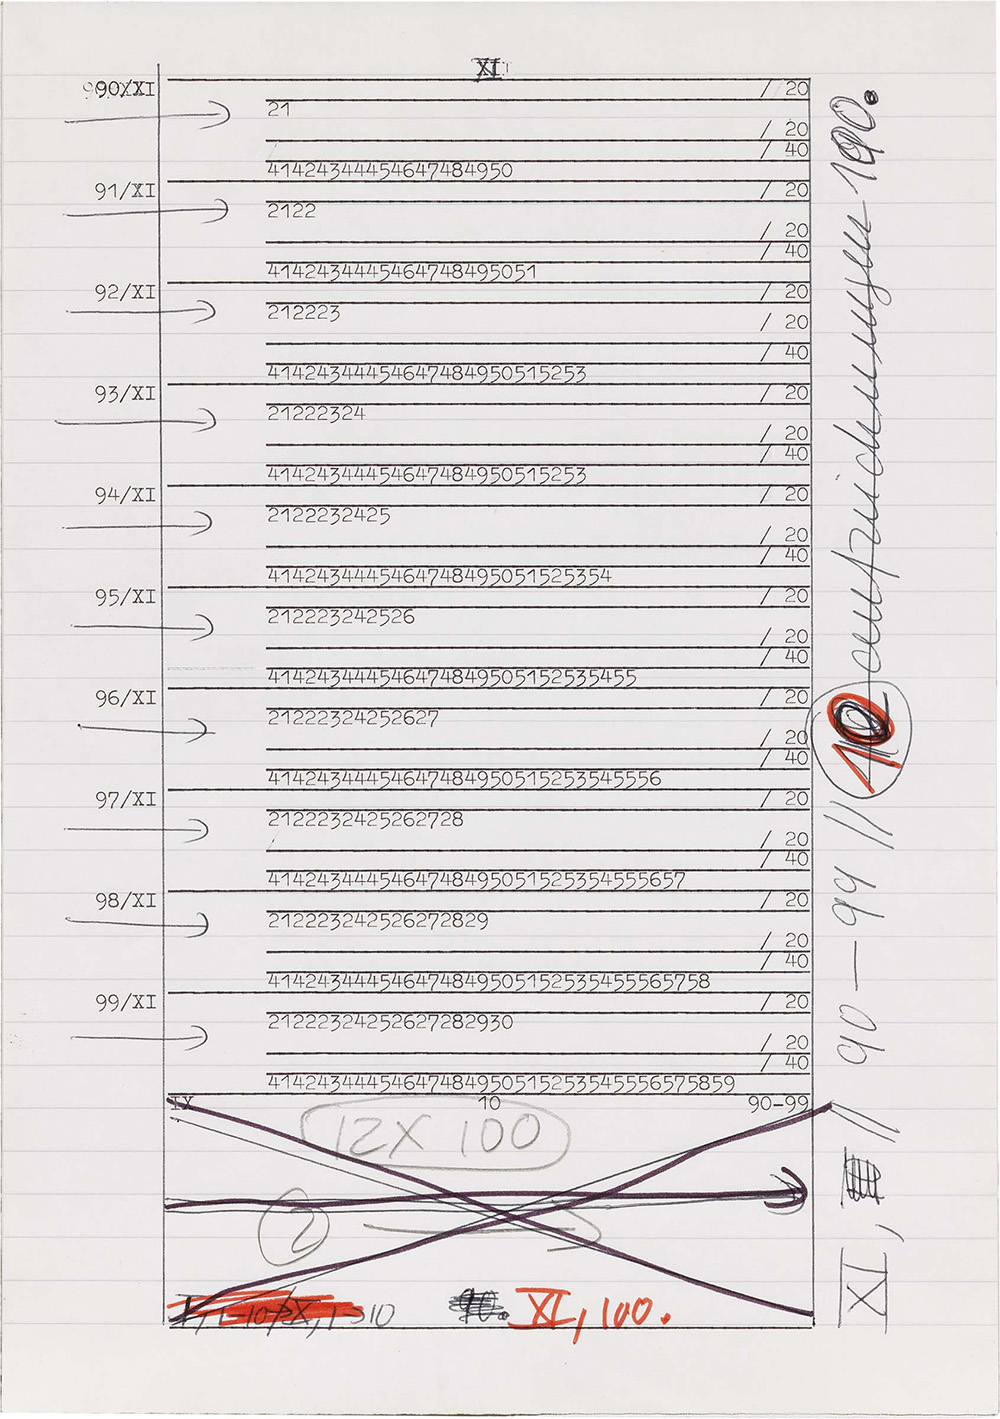 XI
90/XI
/ 20
21
/ 20
/ 40
41424344454647484950
91/XI
/ 20
2122
/ 20
/ 40
4142434445464748495051
92/XI
/ 20
212223
/ 20
/ 40
41424344454647484950515253
93/XI
/ 20
21222324
/ 20
/ 40
41424344454647484950515253
94/XI
/ 20
2122232425
/ 20
/ 40
4142434445464748495051525354
95/XI
/ 20
212223242526
/ 20
/ 40
414243444546474849505152535455
96/XI
/ 20
21222324252627
/ 20
/ 40
41424344454647484950515253545556
97/XI
/ 20
2122232425262728
/ 20
/ 40
4142434445464748495051525354555657
98/XI
/ 20
212223242526272829
/ 20
/ 40
414243444546474849505152535455565758
99/XI
/ 20
21222324252627282930
/ 20
/ 40
41424344454647484950515253545556575859
IX 10 90-99
12X 100
2
XI, 100.
XI, // 90-99 //
100.